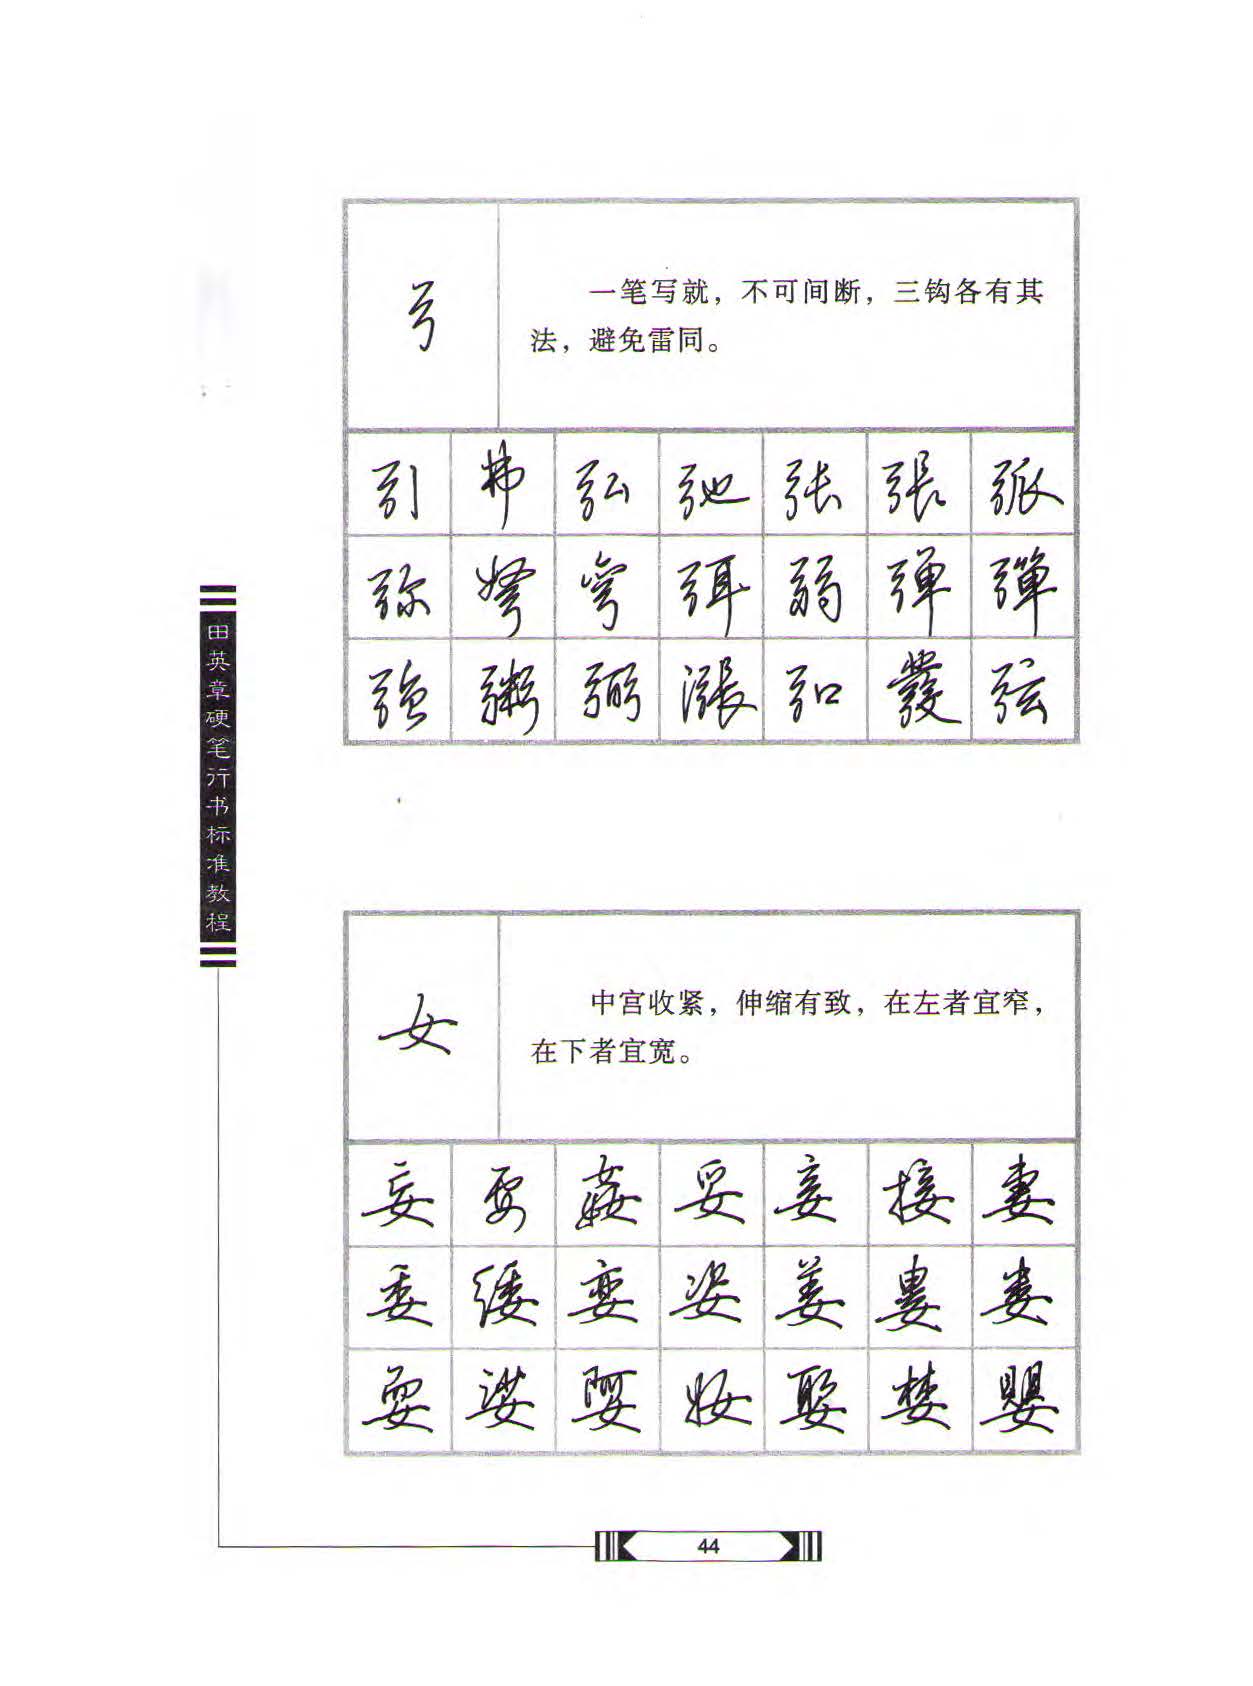 弓
一笔写就，不可间断，三钩各有其
法，避免雷同。
引 弗 弘 弛 张 張 弧
弥 弩 弯 弭 弱 弹 彈
强 粥 弼 漲 弘 發 弦
田英章硬笔行书标准教程
女
中宫收紧，伸缩有致，在左者宜窄，
在下者宜宽。
妄 要 姦 妥 妾 接 妻
委 緌 娈 姿 姜 婁 娄
耍 娑 婴 妝 娶 楼 嬰
44